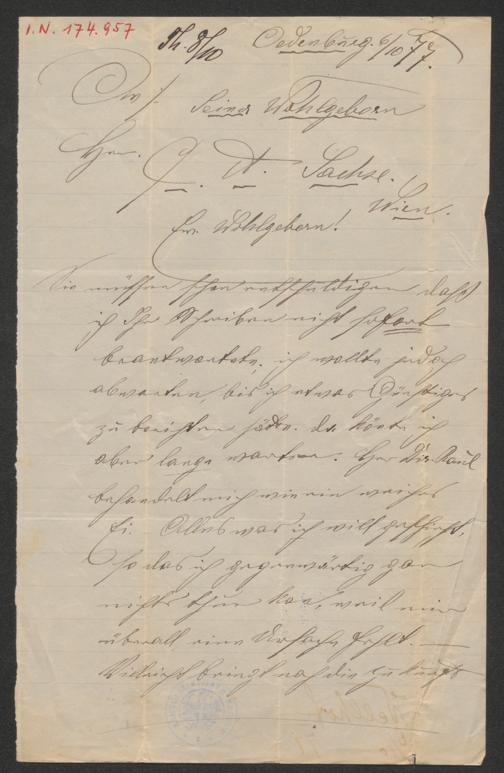 I.N. 174.957
Th. 8/10 Oedenburg. 6/10 77.
Seiner Wohlgeborn
Hrn. C. A. Sachse.
Wien.
Ew. Wohlgeborn!
Sie müssen schon entschuldigen dahs
ich Ihr Schreiben nicht sofort
beantwortete, ich wollte jedoch
abwarten, bis ich etwas Günstiges
zu berichten hätte. da könte ich
aber lange warten. Her Dir. Raul
behandelt mich wie ein weiches
Ei. Alles was ich will geschieht,
so das ich gegenwärtig gar
nichts thun kan, weil mir
überall eine Ursache fehlt. —
Vielleicht bringt noch die Zukunft